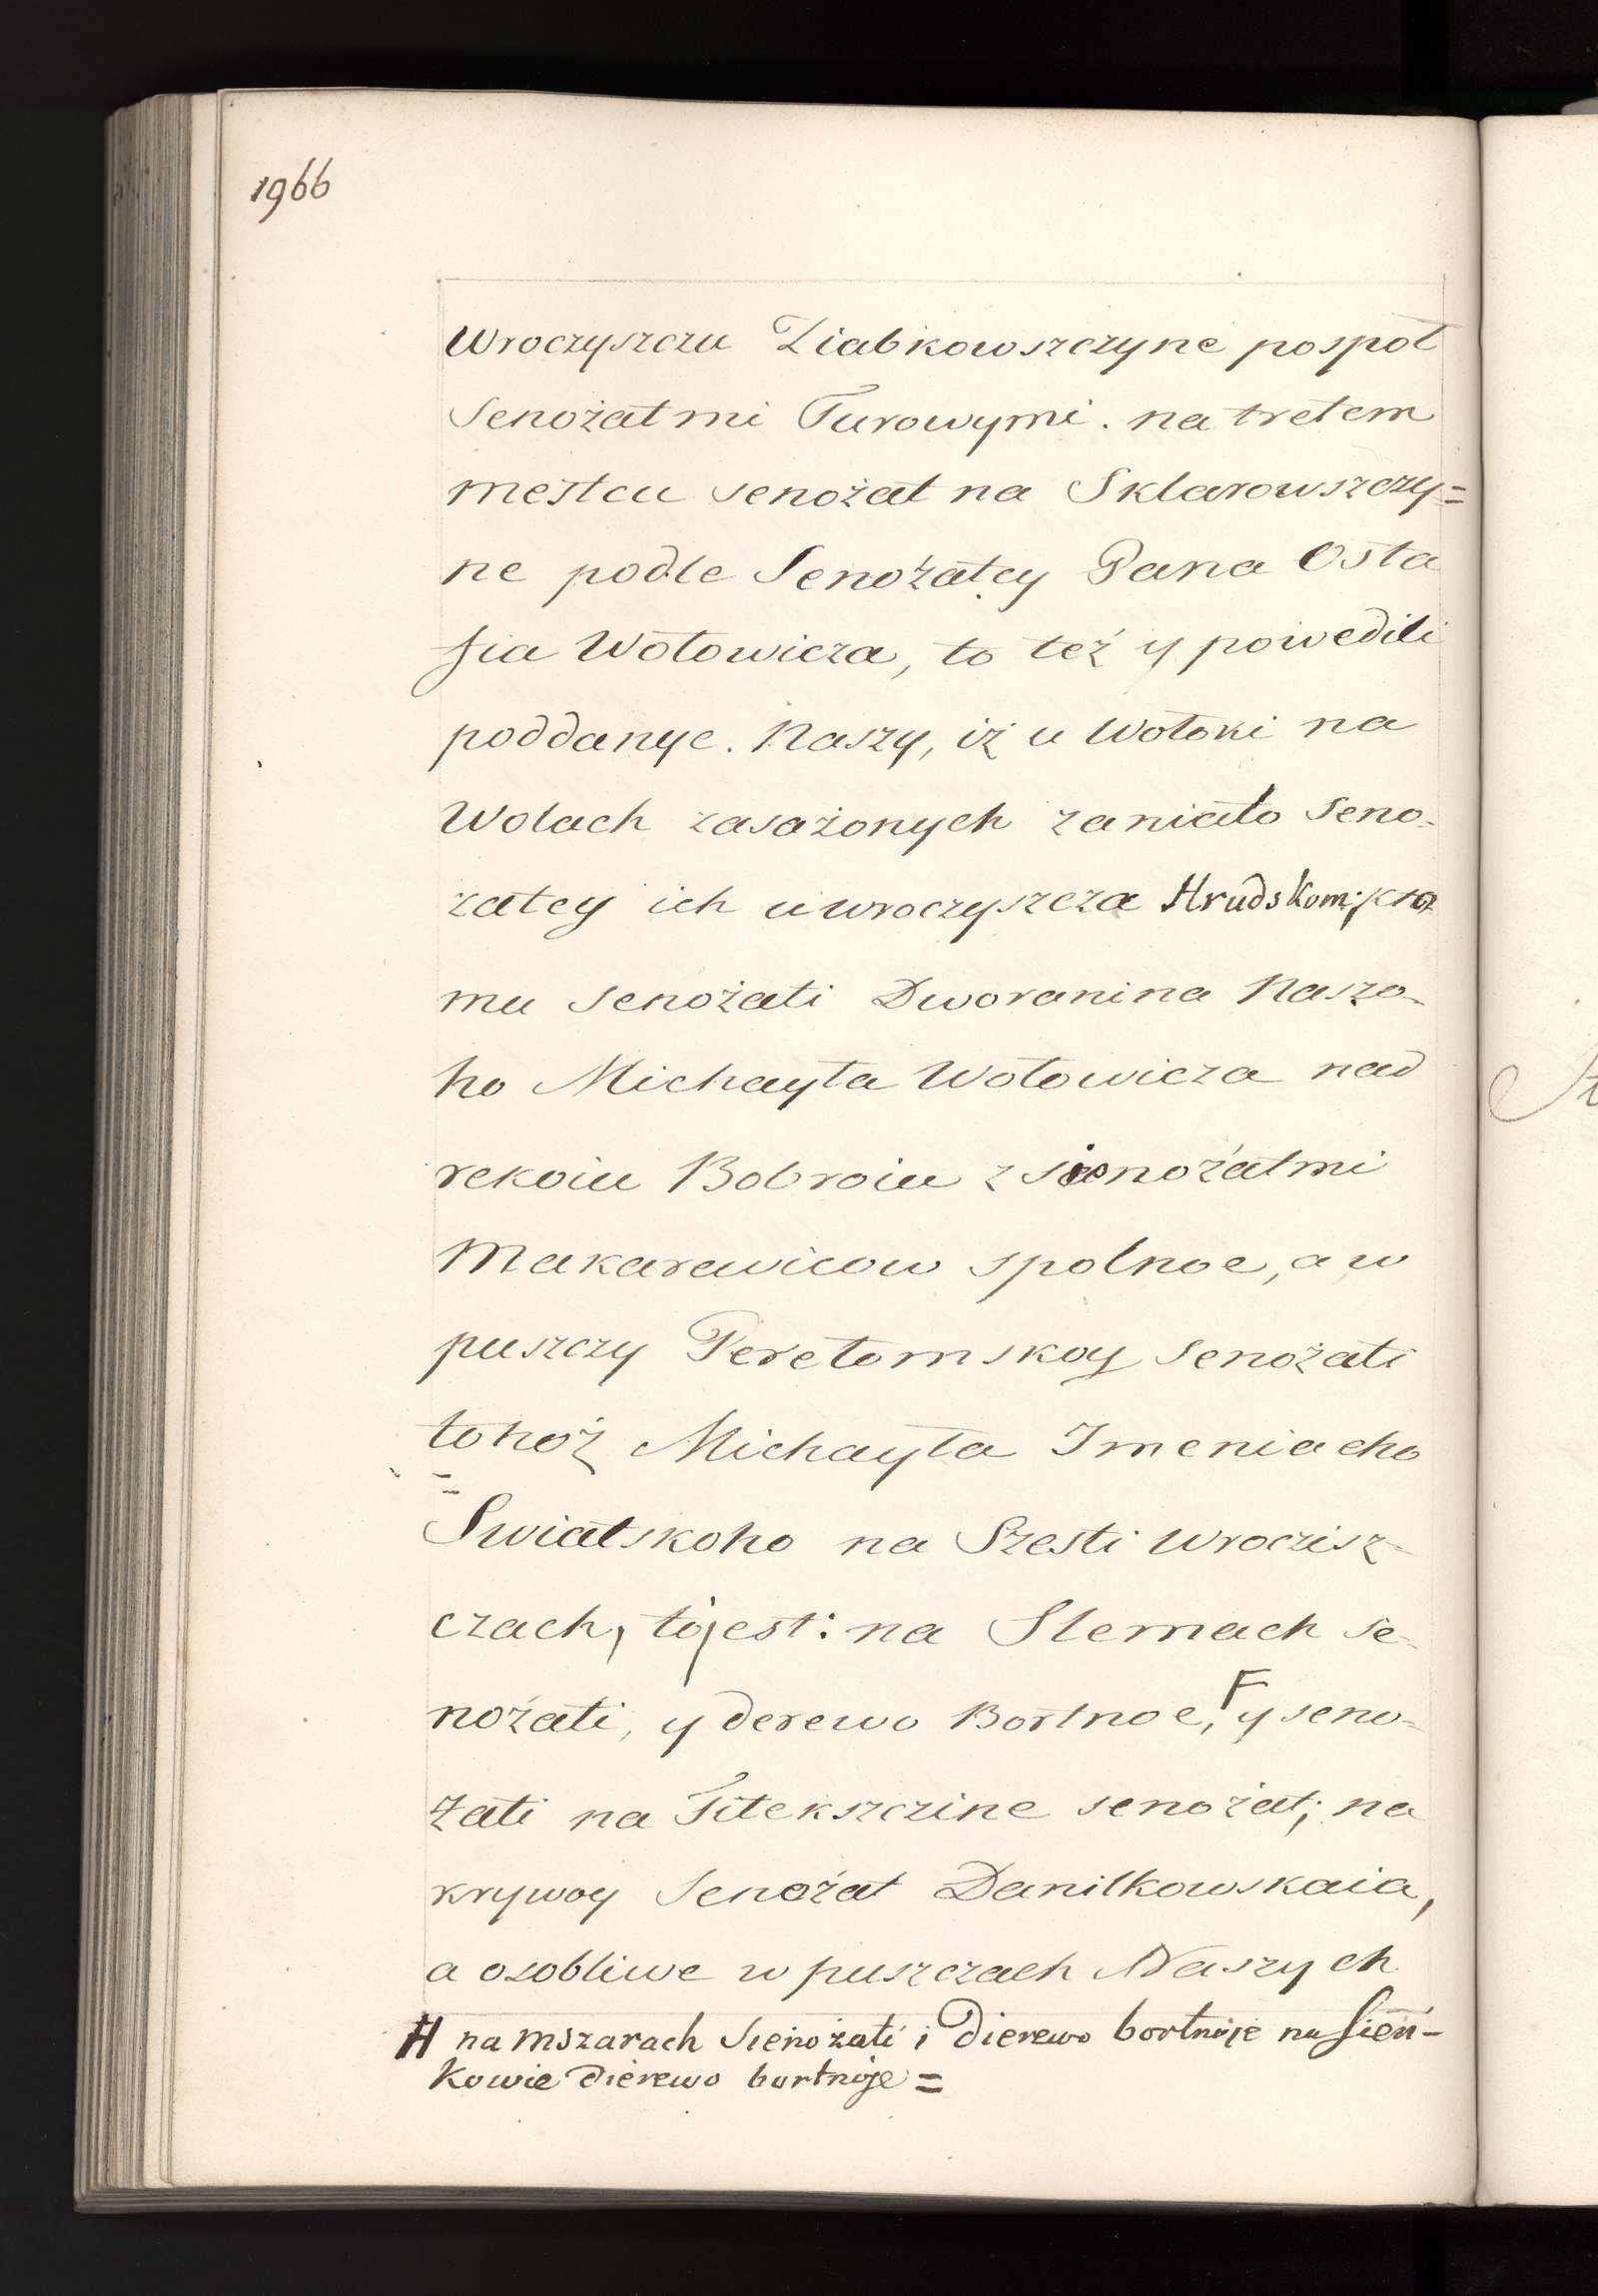 1966
Wroczyszczu Ziabkowszczyne pospoł
Senożatmi Turowymi. na tretem
mestcu senożat na Sklarowszczy=
ne podle Senożatey Pana Osta
fia Wołowicza, to też y powedili
poddanye. Naszy, iż u Wołoki na
Wolach zasażonych zaniało seno-
zatey ich uwroczyszcza Hrudskom;
mu senożati Dworanina Naszo-
ho Michayła Wołowicza nad
rekoiu Bobroiu z sienożatmi
Makarewicow spolnoe, a w
puszczy Perełomskoy senożati
tohoż Michayła Imenia eho
Swiatskoho na Szesti wroczisz-
czach, tojest: na Slemach se-
nożati, y derewo Bortnoe, F y seno-
żati na Titekszczine senożat; na
krywoy Senożat Daniłkowskaia,
a osobliwe w puszczach Naszych
H na mszarach Sienożati i Dierewo bortnoje na Sień-
kowie Dierewo bortnoje =